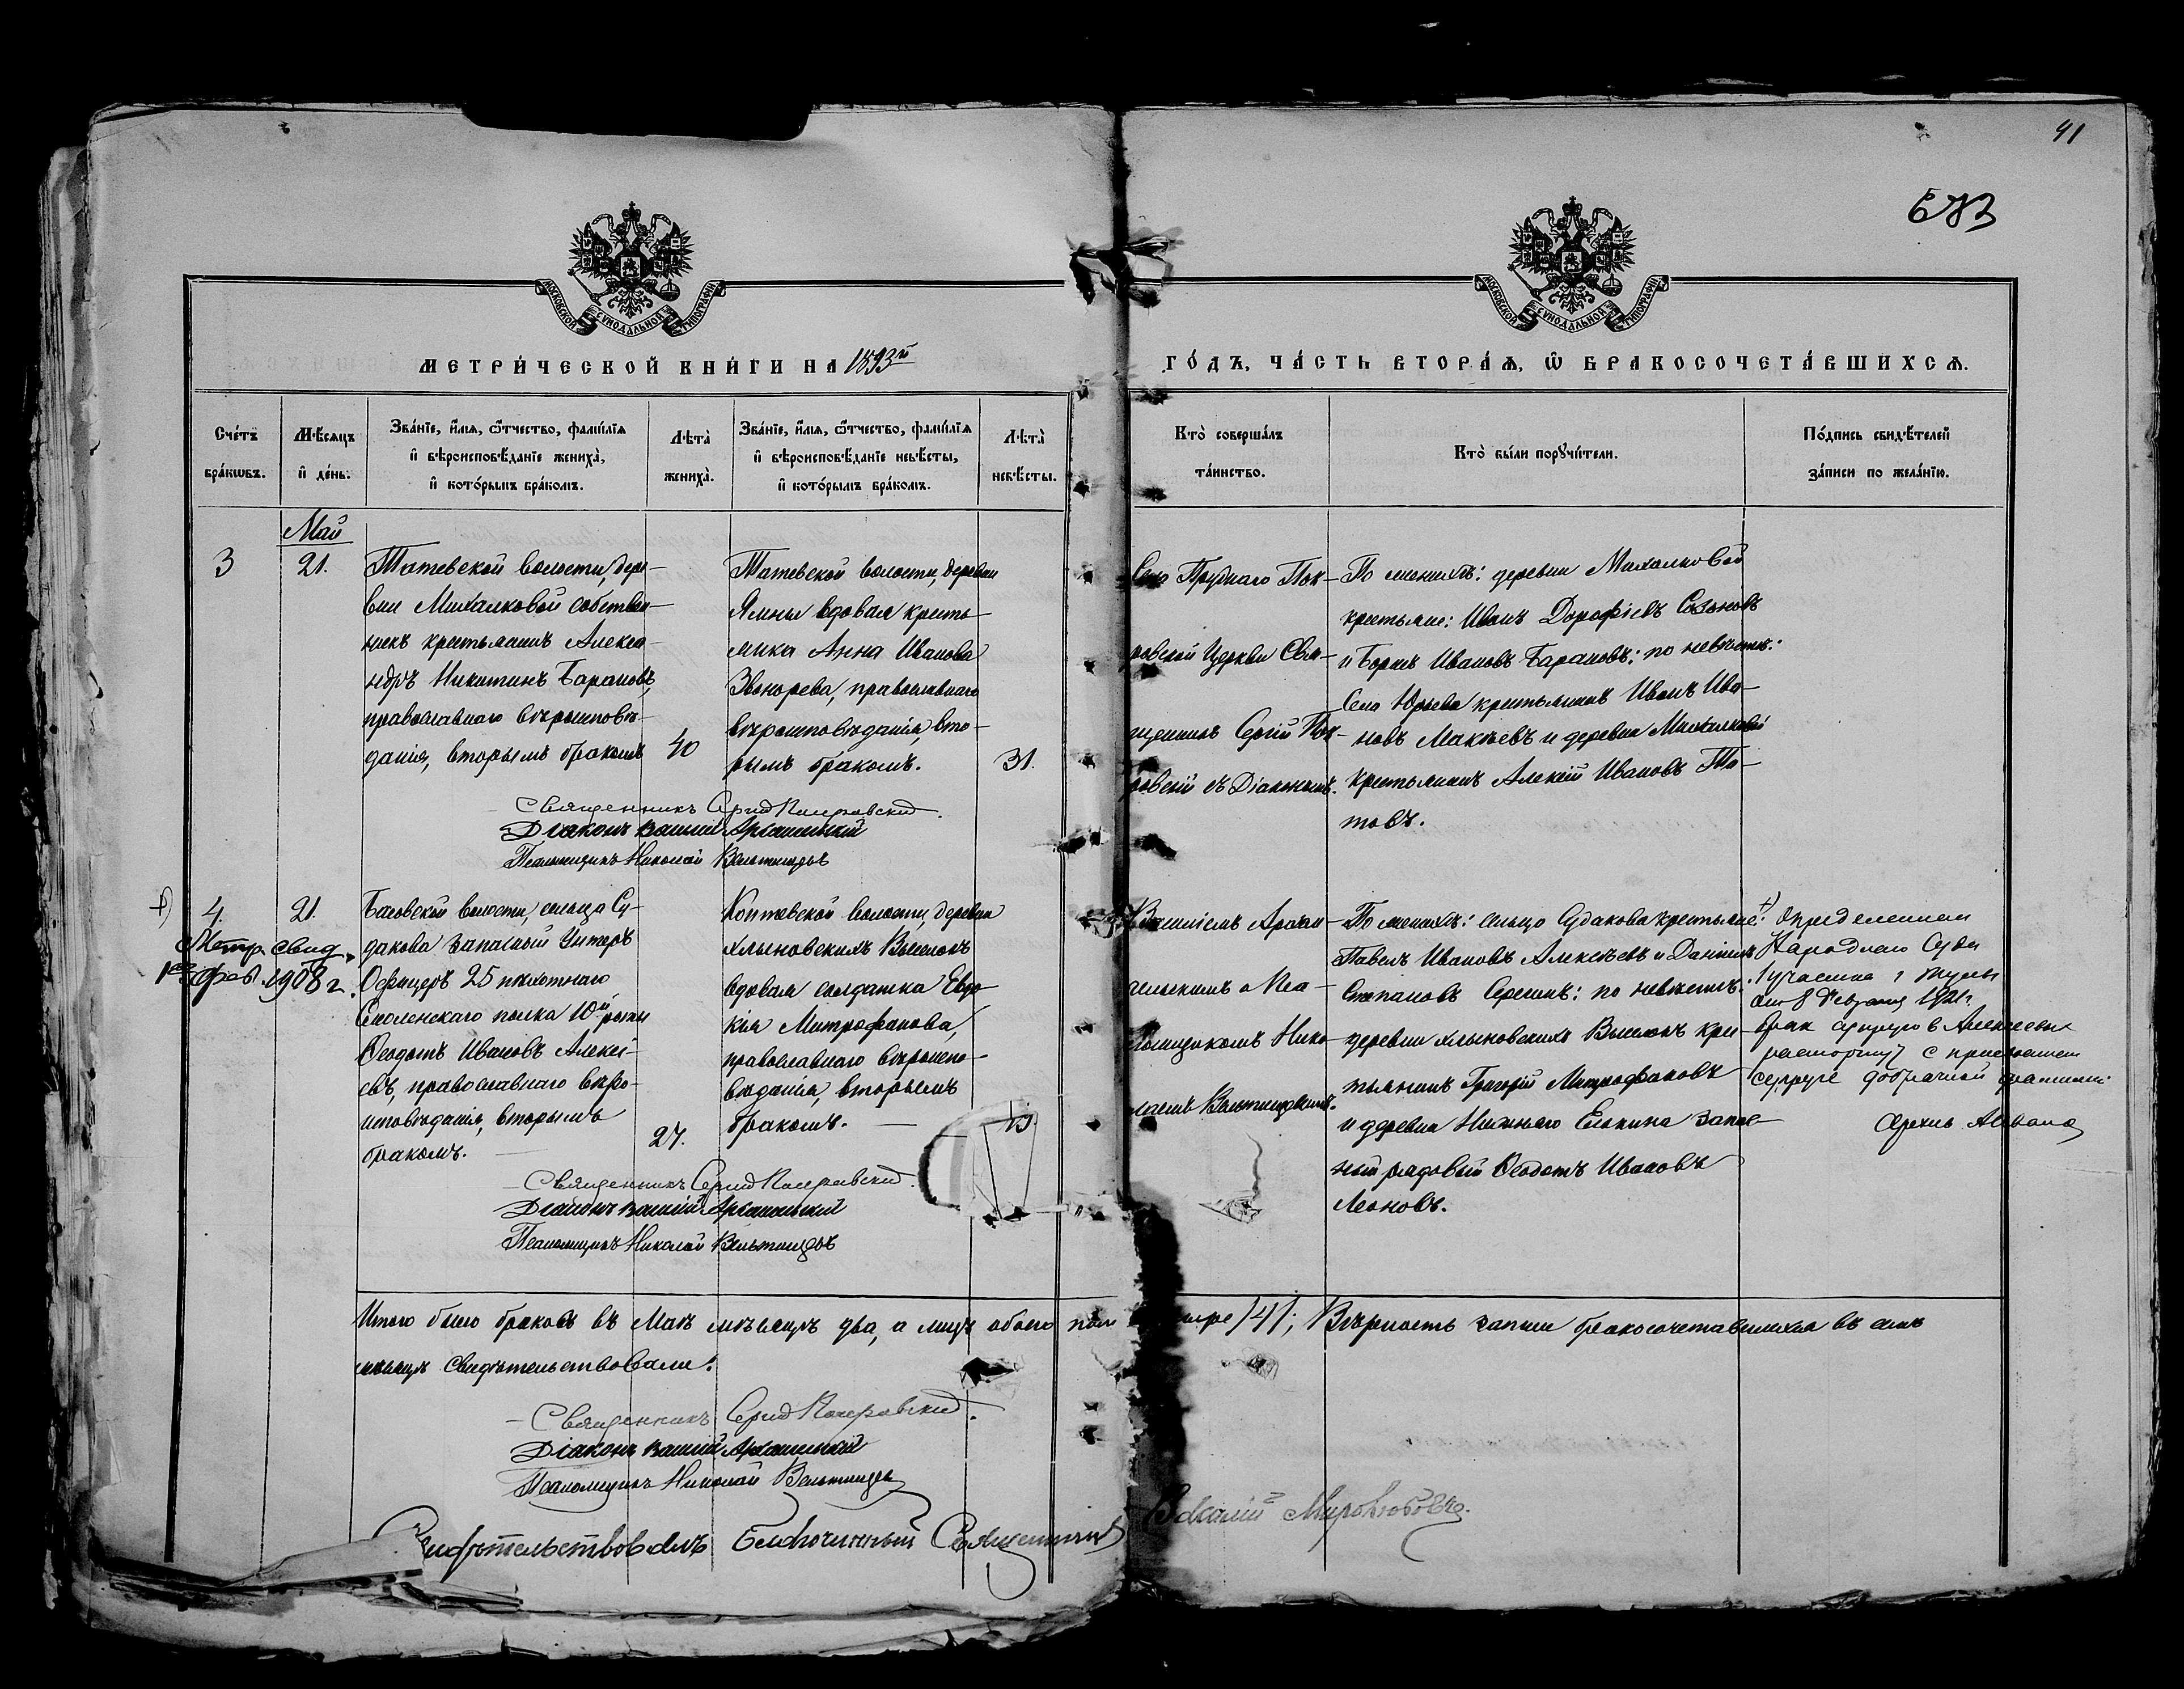 41
673
МОСКОВСКОЙ СѴНОДАЛЬНОЙ ТИПОГРАФІИ
МОСКОВСКОЙ СѴНОДАЛЬНОЙ ТИПОГРАФІИ
МЕТРИ́ЧЕСКОЙ КНИ́ГИ НА 1893й
ГО́ДЪ, ЧА́СТЬ ВТОРА́Ѧ, Ѽ БРАКОСОЧЕТА́ВШИХСѦ.
Сче́тъ
бра́кѡвъ.
Мѣ́сяцъ
и де́нь.
Зва́нїе, и́мя, ѻ́тчество, фами́лїя
и вѣроисповѣ́данїе жениха̀,
и кото́рымъ бра́комъ.
Лѣта̀
жениха̀.
Зва́нїе, и́мя, ѻ́тчество, фами́лїя
и вѣроисповѣ́данїе невѣ́сты,
и кото́рымъ бра́комъ.
Лѣта̀
невѣ́сты.
Кто̀ соверша́лъ
та́инство.
Кто̀ бы́ли порꙋчи́тели.
По́дпись свидѣ́телей
за́писи по жела́нїю.
Май
3
21.
Татевской волости, дере-
вни Михалковой собствен-
никъ крестьянинъ Алекса-
ндръ Никитинъ Барановъ,
православнаго вѣроисповѣ-
данія, вторымъ бракомъ
40
Татевской волости, деревни
Ямны вдовая кресть-
янка Анна Иванова
Звонарева, православнаго
вѣроисповѣданія, вто-
рымъ бракомъ.
31.
Села Пруднаго Пок-
ровской Церкви Свя-
щенникъ Сергій Пок-
ровскій съ Діакономъ
По женихѣ: деревни Михалковой
крестьяне: Иванъ Дорофѣевъ Сазоновъ
и Борисъ Ивановъ Барановъ: по невѣстѣ:
Села Юрьева крестьянинъ Иванъ Ива-
новъ Макѣевъ и деревни Михалковой
крестьянинъ Алексѣй Ивановъ Ти-
товъ.
Священникъ Сергій Покровскій.
Діаконъ Василій Архангельскій
Псаломщикъ Николай Вельтищевъ
4.
21.
Метр. свид.
1го фев. 1908 г.
волости, сельца Су-
дакова запасный Унтеръ
Офицеръ 25 пѣхотнаго
Смоленскаго полка 10й роты
Ѳеодотъ Ивановъ Алексѣ-
евъ, православнаго вѣро-
исповѣданія, вторымъ
бракомъ.
27.
волости, деревни
Хлыновскихъ Выселокъ
вдовая солдатка Евдо-
кія Митрофанова,
православнаго вѣроиспо-
вѣданія, вторымъ
бракомъ.
Василіемъ Архан-
гельскимъ и Пса-
ломщикомъ Нико-
лаемъ Вельтищевымъ.
По женихѣ: сельца Судакова крестьяне:
Павелъ Ивановъ Алексѣевъ и Даніилъ
Степановъ: по невѣстѣ:
деревни Хлыновскихъ Выселокъ крес-
тьянинъ Григорій Митрофановъ
и деревни Нижняго Елькина запас-
ный рядовой Ѳеодотъ Ивановъ
Леоновъ.
Определением
Народного Суда
1 участка г Тулы
от 8 Февраля 1921 г.
брак супругов Алексеевых
расторгнут с присвоением
супруге добрачной фамилии
Священникъ Сергій Покровскій.
Діаконъ Василій Архангельскій
Псаломщикъ Николай Вельтищевъ
Итого было браковъ въ Маѣ мѣсяцѣ два, а лицъ обоего пола четыре /4/; Вѣрность записи бракосочетавшихся въ семъ
мѣсяцѣ свидѣтельствовали:
Священникъ Сергій Покровскій.
Діаконъ Василій Архангельскій
Псаломщикъ Николай Вельтищевъ
Свидѣтельствовалъ Благочинный Священникъ Василій Миролюбовъ.